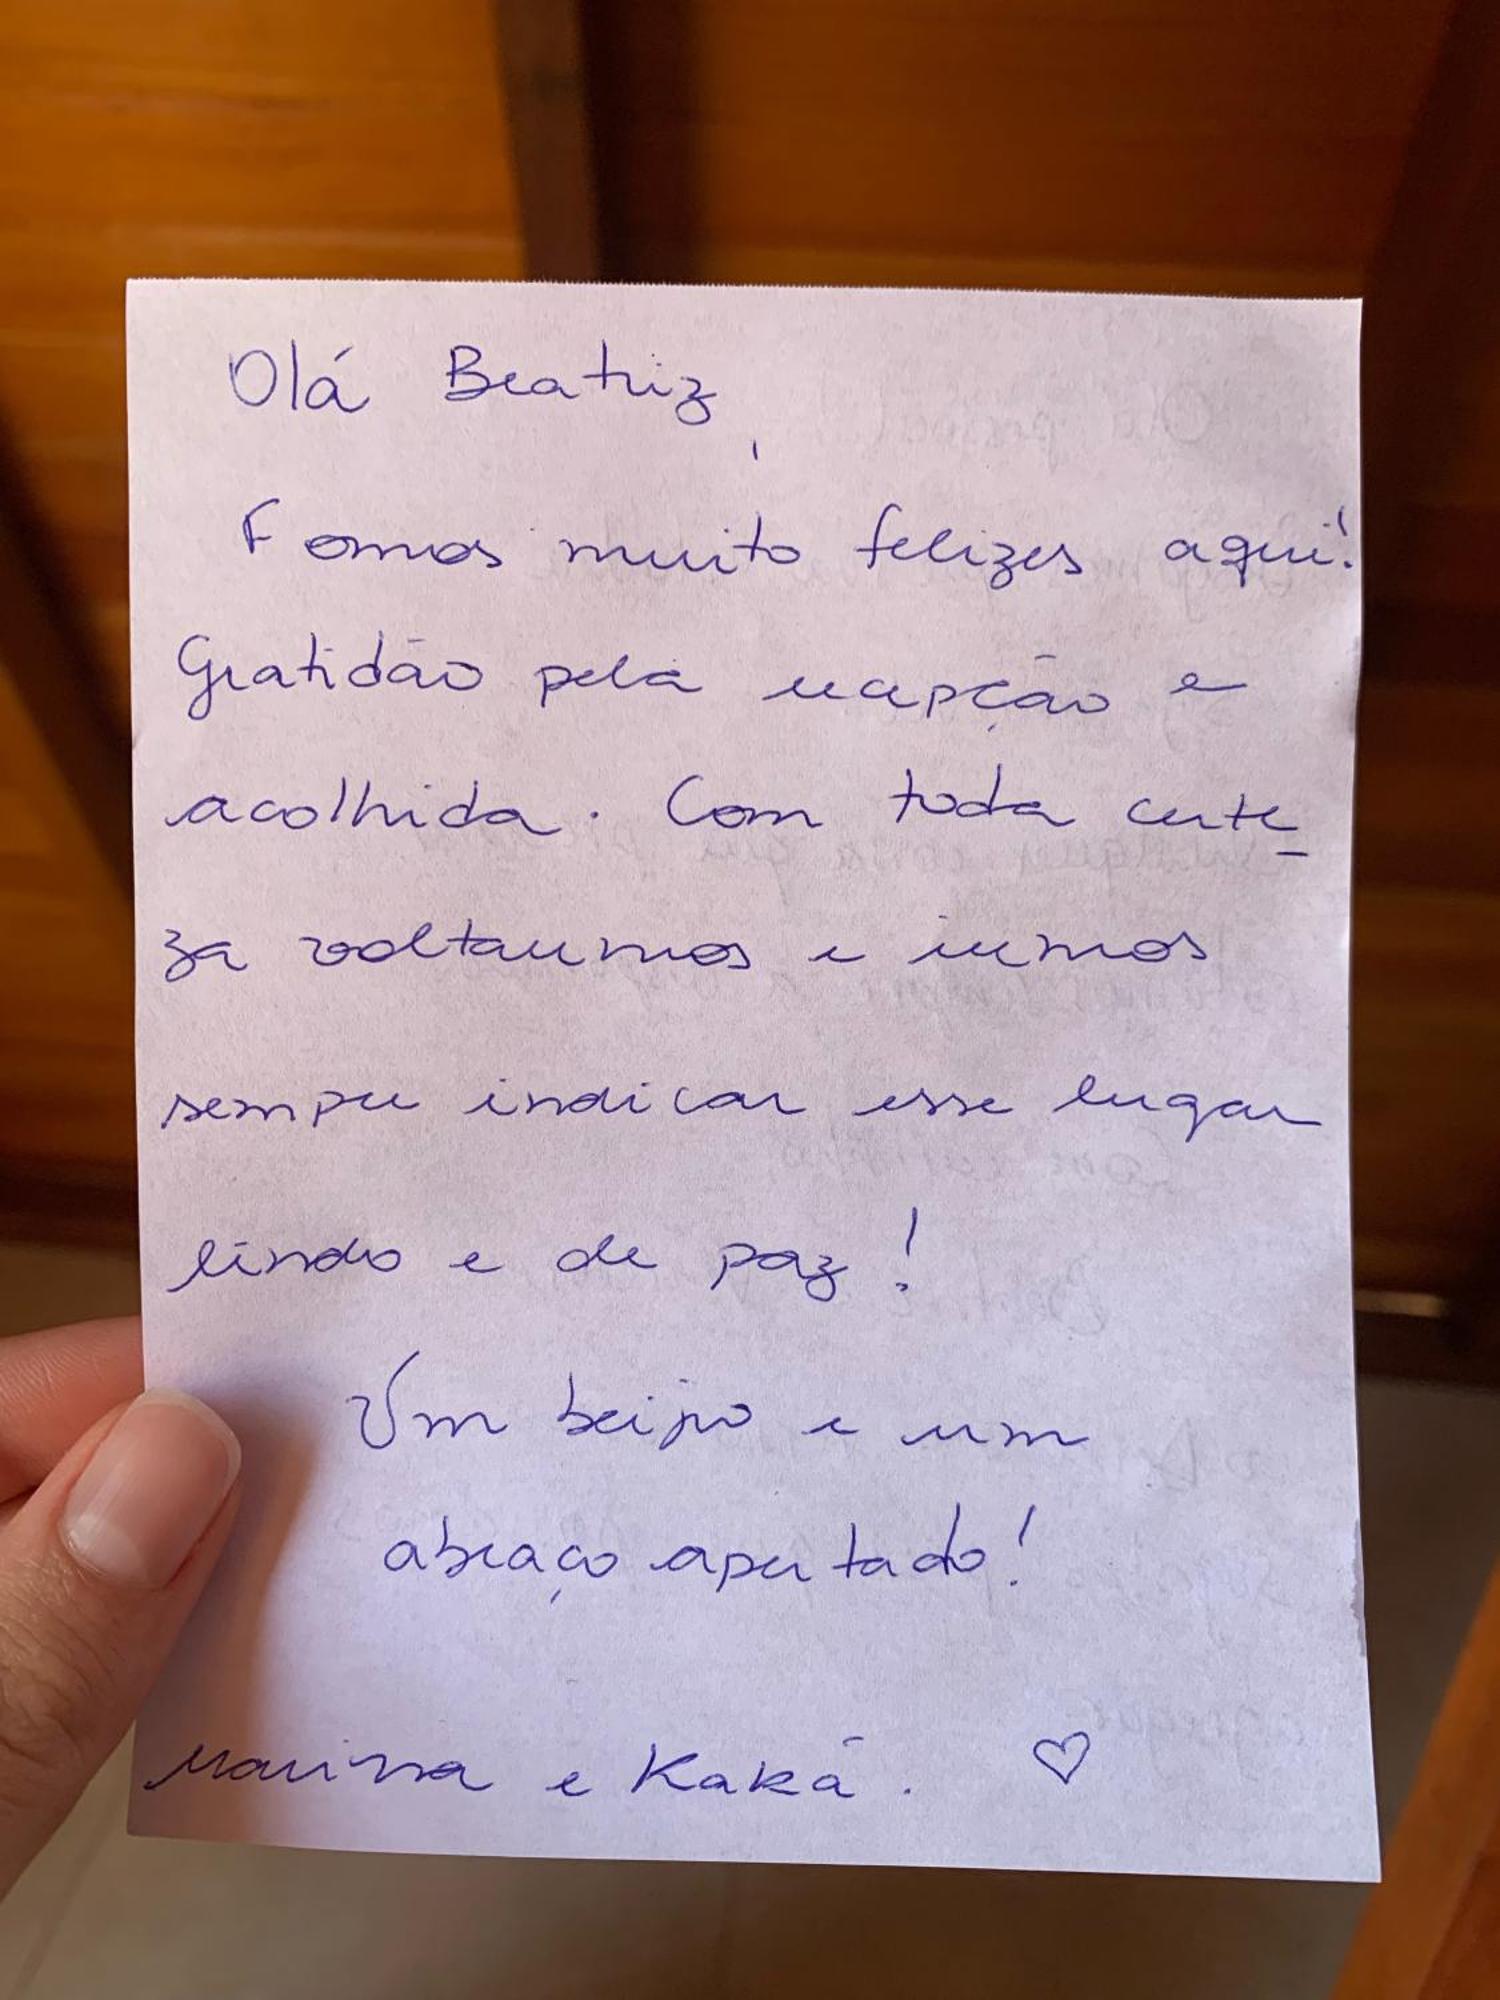 Olá Beatriz,
Fomos muito felizes aqui!
Gratidão pela recepção e
acolhida. Com toda certe-
za voltaremos e iremos
sempre indicar esse lugar
lindo e de paz!
Um beijo e um
abraço apertado!
e Kaká. ♡